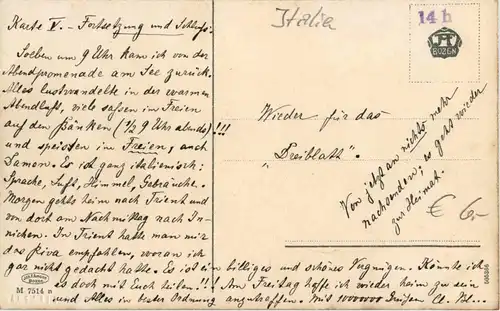 Karte V. – Fortsetzung und Schluß:
Soeben um 9 Uhr kam ich von der
Abendpromenade am See zurück.
Alles lustwandelte in der warmen
Abendluft, viele saßen im Freien
auf den Bänken (1/2 9 Uhr abends)!!!
und speisten im Freien, auch
Damen. Es ist ganz italienisch:
Sprache, Luft, Himmel, Gebräuche.
Morgen gehts heim nach Trient und
von dort am Nachmittag nach In-
nichen. In Trient hatte man mir
das Riva empfohlen, woran ich
gar nicht gedacht hatte. Es ist ein billiges und schönes Vergnügen. Könnte ich
es doch mit Euch teilen!!! Am Freitag hoffe ich wieder heim zu sein
und Alles in bester Ordnung anzutreffen. Mit 1000000 Grüßen
Italia
14 h
BOZEN
Wieder für das
„Dreiblatt".
Von jetzt an nichts mehr
nachsenden; es geht wieder
zur Heimat.
€ 6.-
M 7514 n